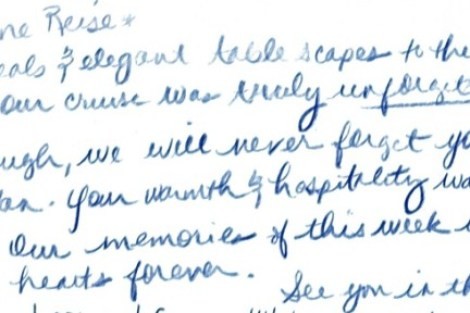 ne Reise*
eals & elegant table scapes to the
our cruise was truly unforget
ugh, we will never forget yo
an. Your warmth & hospitality wa
Our memories of this week
hearts forever.
See you in th